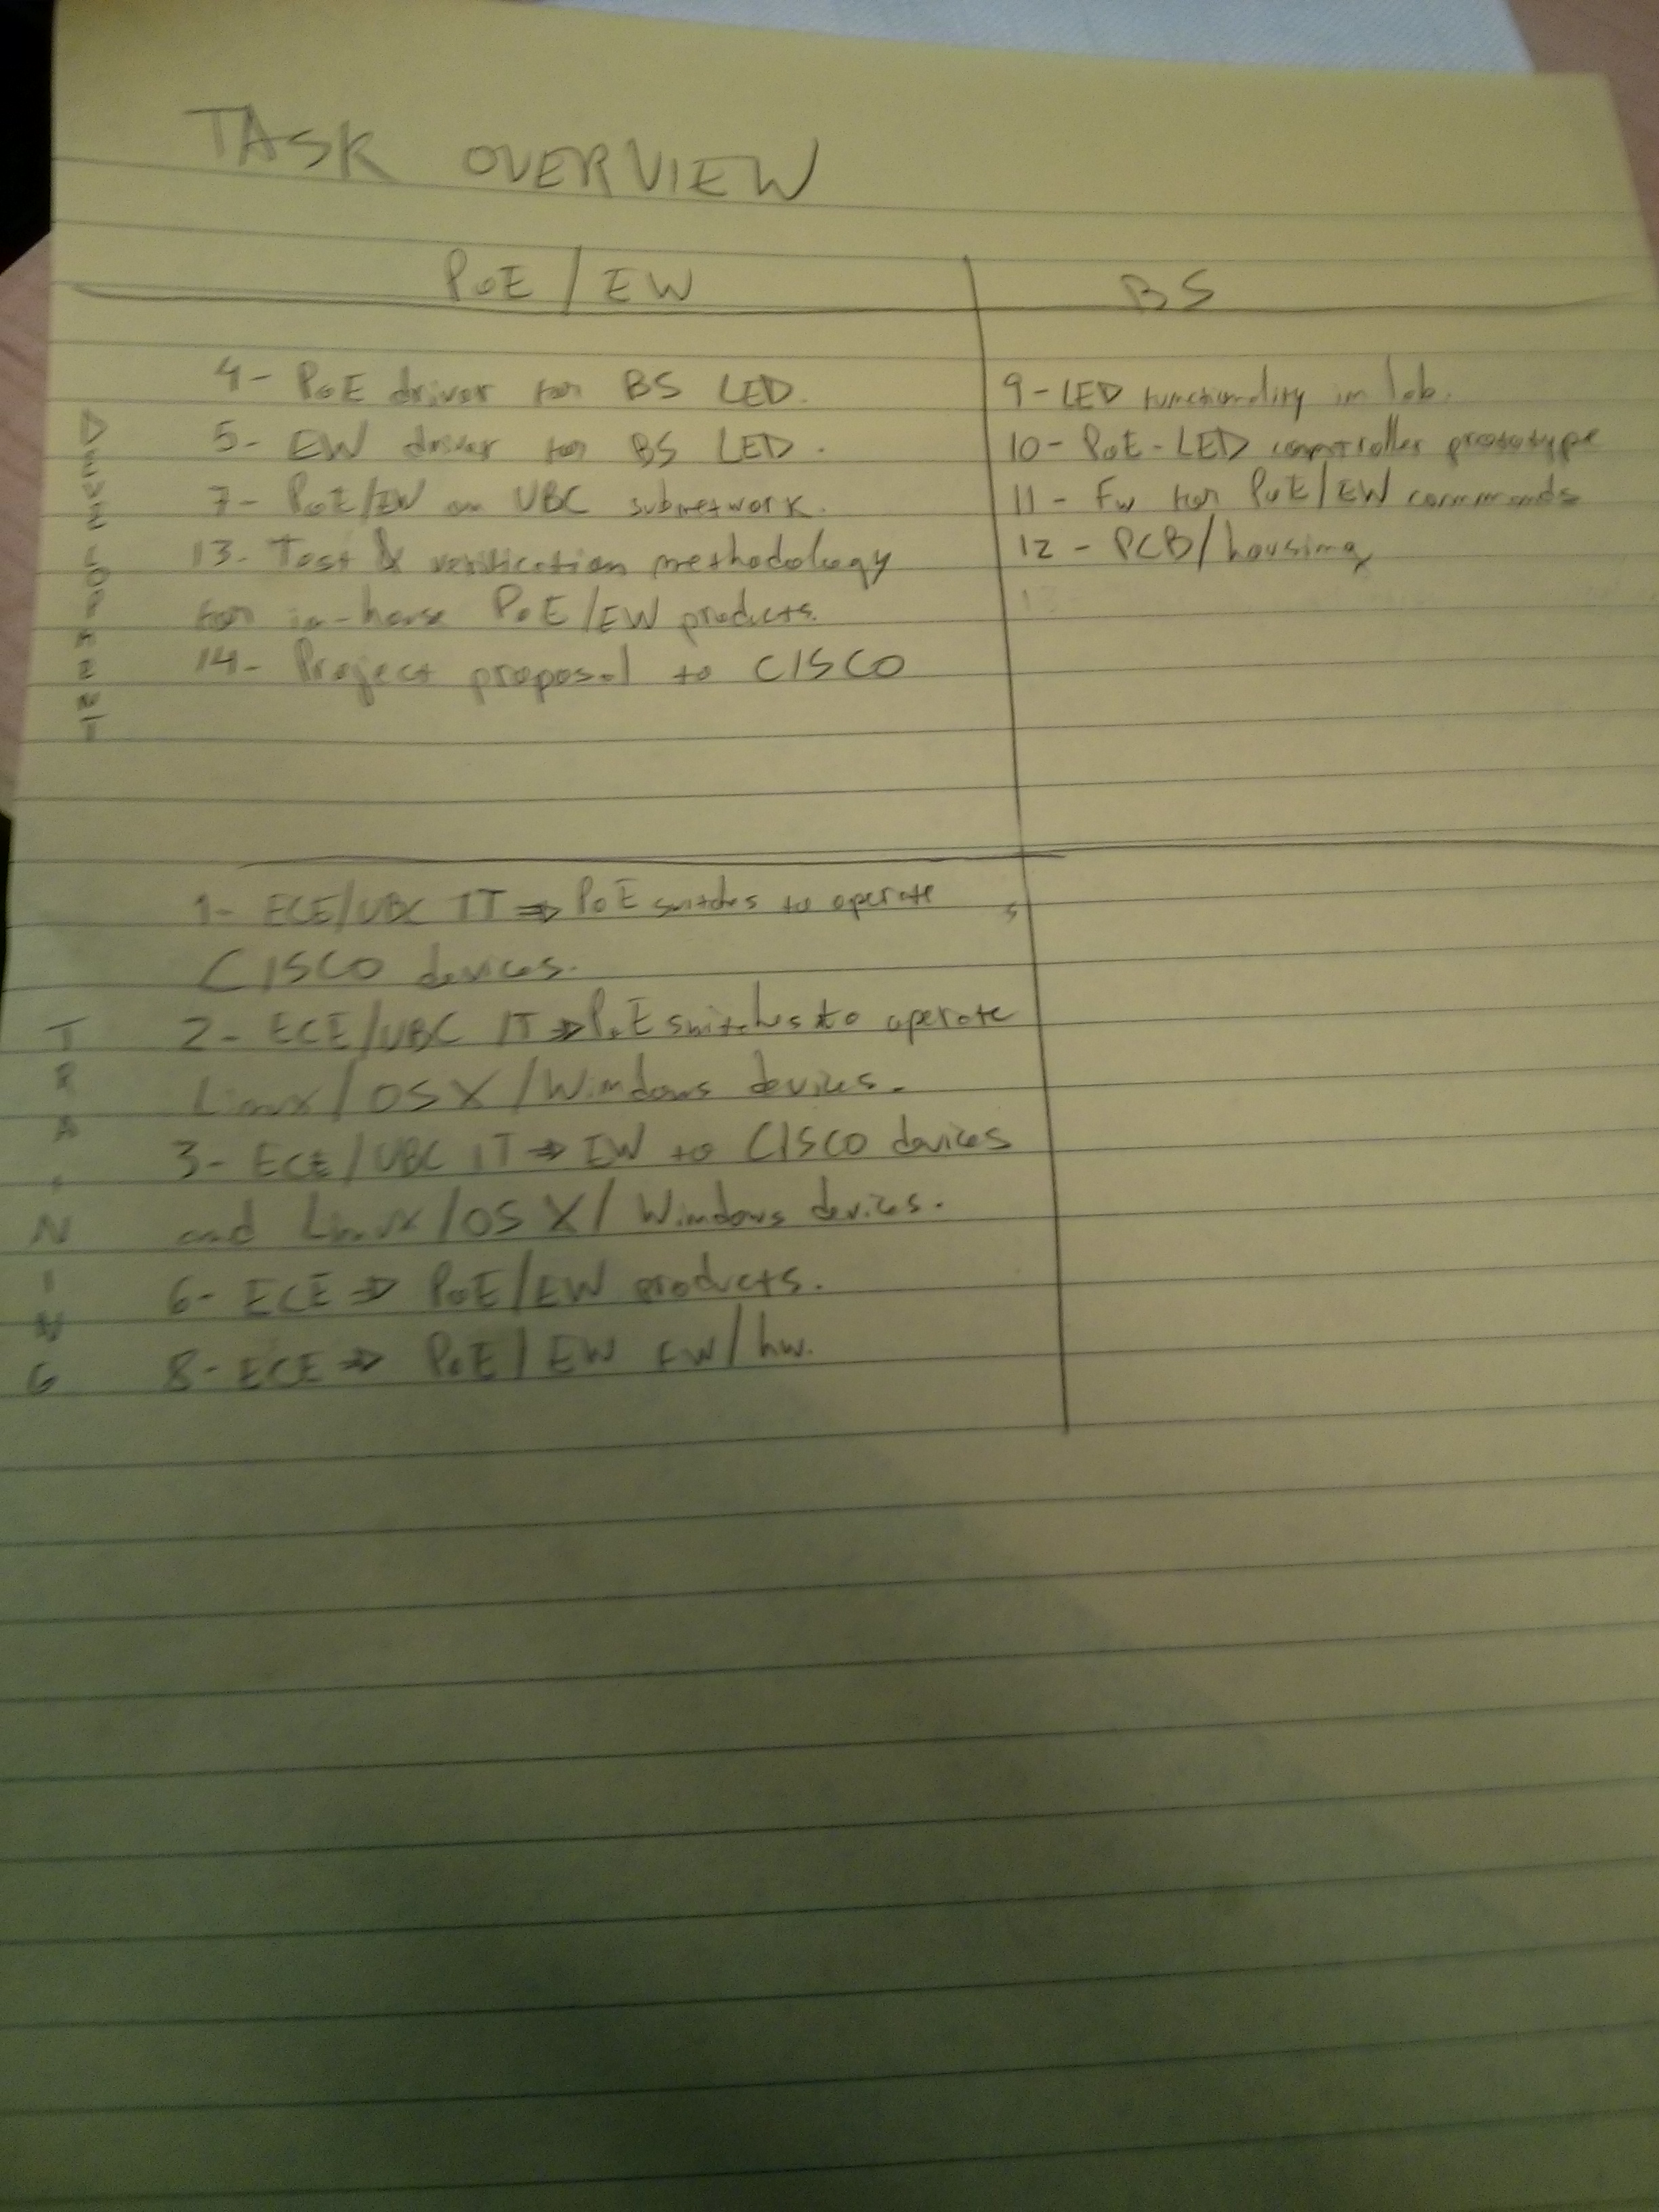 TASK OVERVIEW
PoE / EW
BS
DEVELOPMENT
4- PoE driver for BS LED.
5- EW driver for BS LED.
7- PoE/EW on UBC subnetwork.
13. Test & verification methodology
for in-house PoE/EW products.
14- Project proposal to CISCO
9- LED functionality in lab.
10- PoE-LED controller prototype
11- Fw for PoE/EW commands
12- PCB/housing
TRAINING
1- ECE/UBC IT ⇒ PoE switches to operate
CISCO devices.
2- ECE/UBC IT ⇒ PoE switches to operate
Linux/OSX/Windows devices.
3- ECE/UBC IT ⇒ EW to CISCO devices
and Linux/OSX/Windows devices.
6- ECE ⇒ PoE/EW products.
8- ECE ⇒ PoE/EW fw/hw.